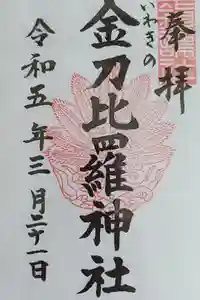 奉拝
いわきの
金刀比羅神社
令和五年三月二十一日